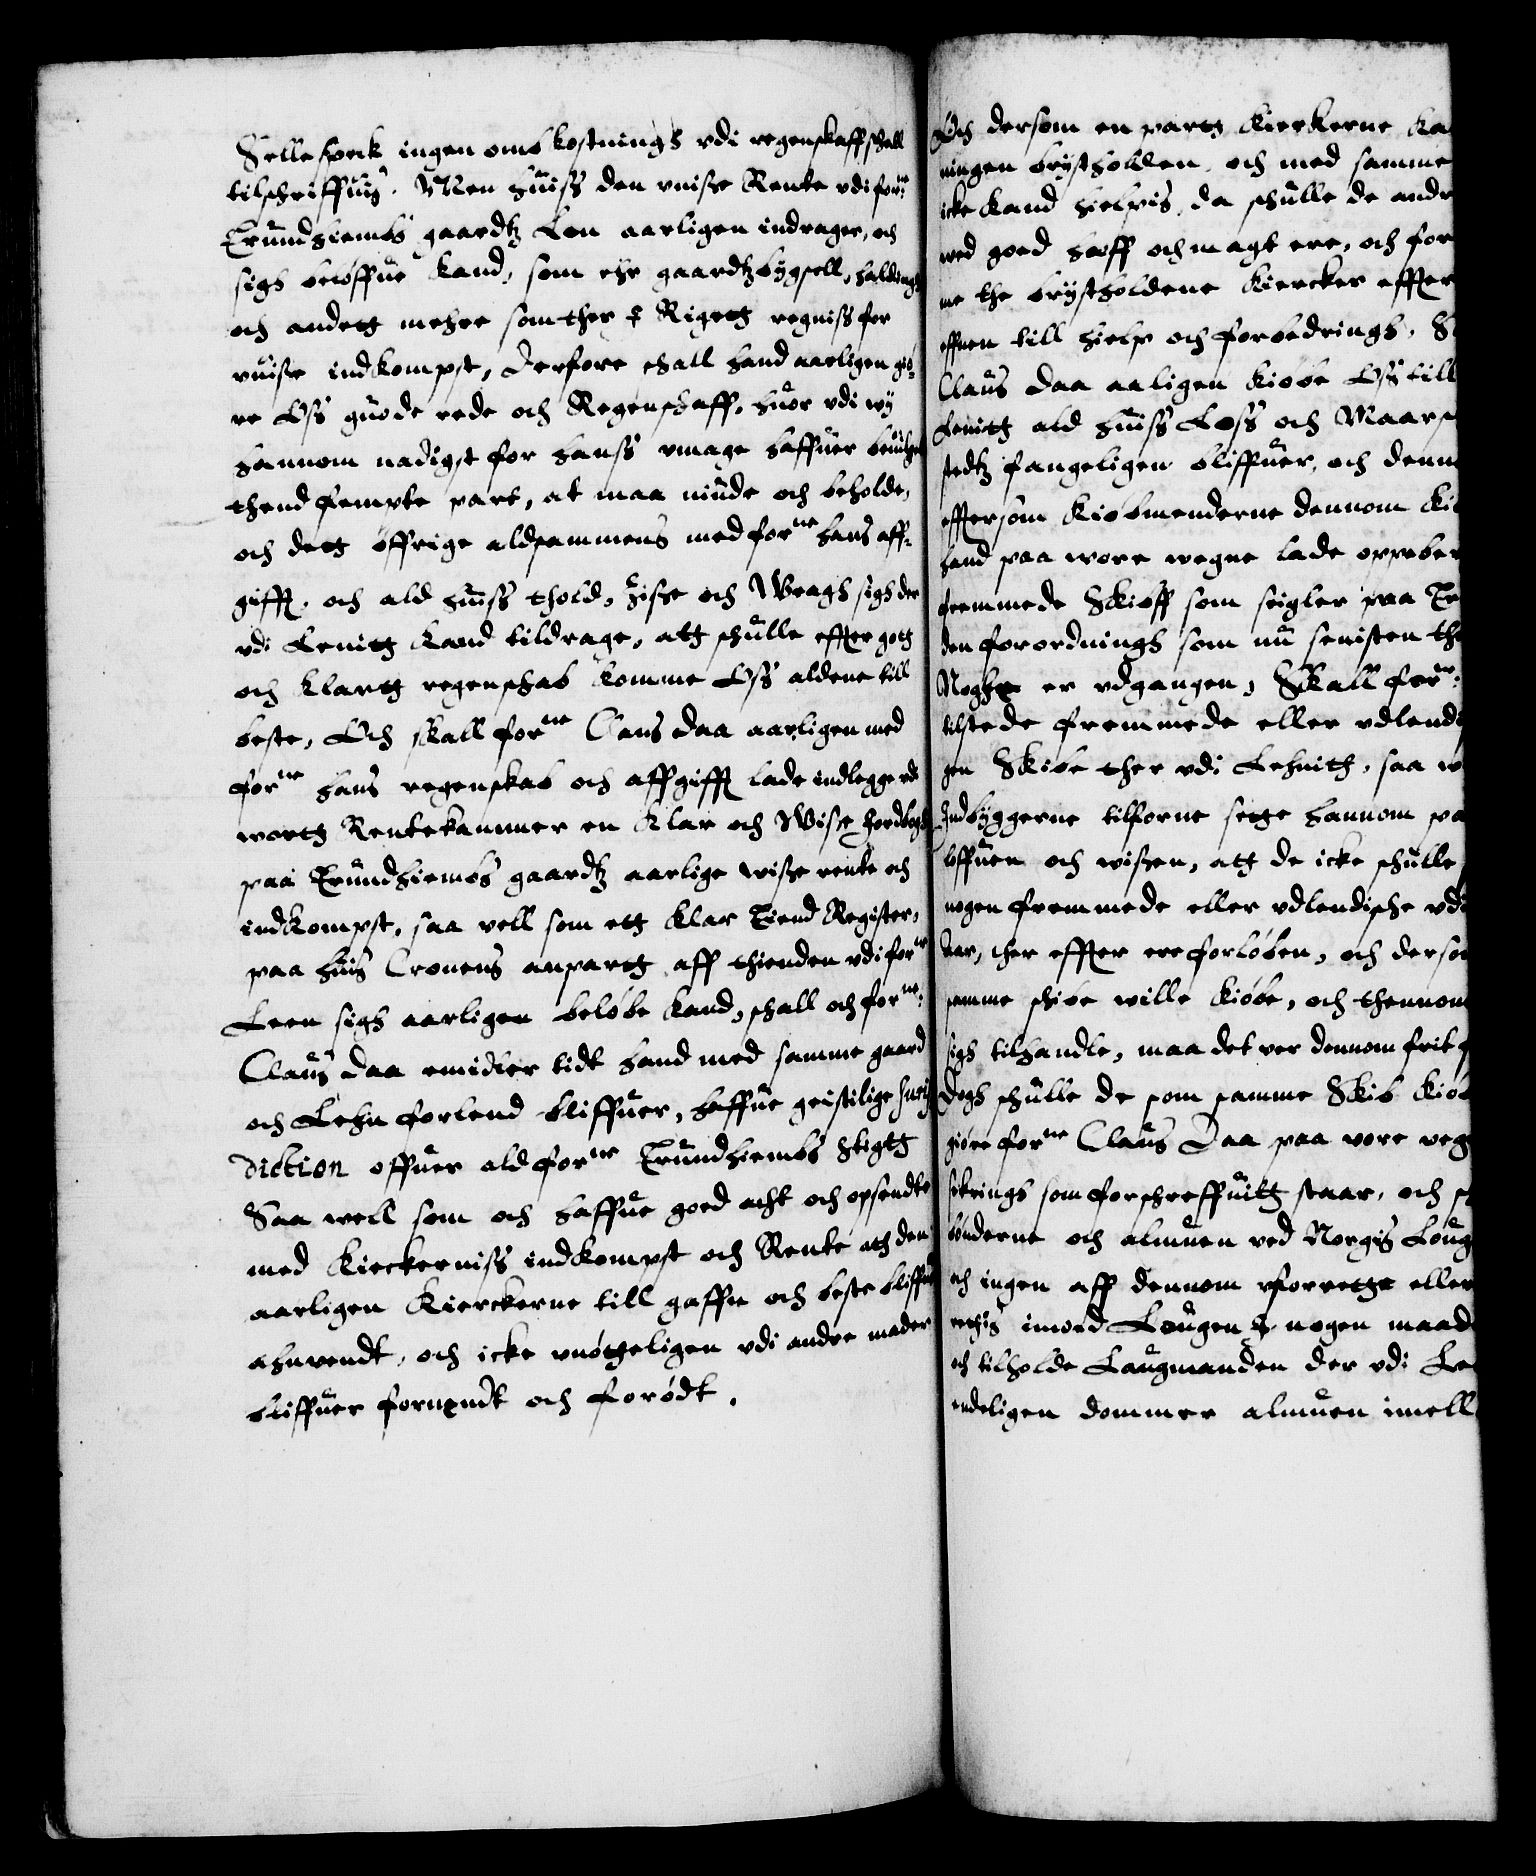 Selle speck ingen ombkostnings vdi regenskaff schall
tilschriffuis. Men huiss den vuisse Rente vdi forne:
Trundhiembs gaardtz Len aarligen indrager, och
sigh beløffue kand, som ehr gaardtzbygsell, haldings
och andetg mehre som ther i Rigetg regniss for
vuisse indkompst, Derfore schall hand aarligen giø-
re Oss guode rede och Regenschaff, huor vdi wy
hannom nadigst for hanss vmage haffuer beuilget
thend fempte part, at maa niude och beholde,
och detg øffrige aldsammens med forne hans aff-
gifft, och ald huiss thold, zisse och Wragh sigh der
vdi Lenitg kand tildrage, attg schulle effter gotg
och klartg regenschab komme Oss aldene till
beste, Och skall forne Claus Daa aarligen med
forne hans regenskab och affgifft lade indlegge vdi
wortg Rentekammer en klar och Wisse Jordbogh
paa Trundhiembs gaardtz aarlige wisse rente och
indkompst, saa vell som etg klar Tiend Register,
paa huis Cronens anpartg aff thienden vdi forne
Leen sigh aarligen beløbe kand, schall och forne:
Claus Daa emidler tidt hand med samme gaard
och Lehn forlend bliffuer, haffue geistilige Juris
diction offuer ald forne Trundhiembs Stigtg
Saa well som och haffue goed acht och opsendte
med Kierckerniss indkompst och Rente ath den
aarligen Kierckerne till gaffn och beste bliffuer
ahnvendt, och icke vnøtgeligen vdi andre mader
bliffuer fornendt och forødt.
Och dersom en partg Kierkerne ka
ningen brystholden, och med samme
icke kand hielpis, da schulle de andr
wed goed hæff och magt ere, och for
me the brystholdene Kiercker effter
effnen till hielp och forbedrings. S
Claus Daa aaligen kiøbe Oss till
Lenitg ald huiss Loss och Maar
stedtz fangeligen bliffuer, och denn
effter som kiøbmenderne dennom ki
hand paa wore wegne lade oppeber
fremmede Skioff som seigler paa Tr
den forordnings som nu senisten th
Noghet er vdgangen, Skall forne:
tilstede fremmede eller vdlend
gen Skibe ther vdi Lehnith, saa w
Indbyggerne tilforne seige hannom pa
løffuen och wissen, attg de icke schulle
nogen fremmede eller vdlendische vdi
Aar, ther effter ere forløben, och derso
samme schibe wille kiøbe, och thennom
sigh tilhandle, maa det ver dennom frit f
Dogh schulle de som samme Skib kiøb
giøre forne Claus Daa paa vore veg
sikrings som forschreffuitg staar, och s
bønderne och almuen ved Norgis Loug
och ingen aff dennom forretge eller
rethis imoed Lougen i nogen maad
och tilholde Laugmanden der vdi Le
endeligen dommer almuen imell